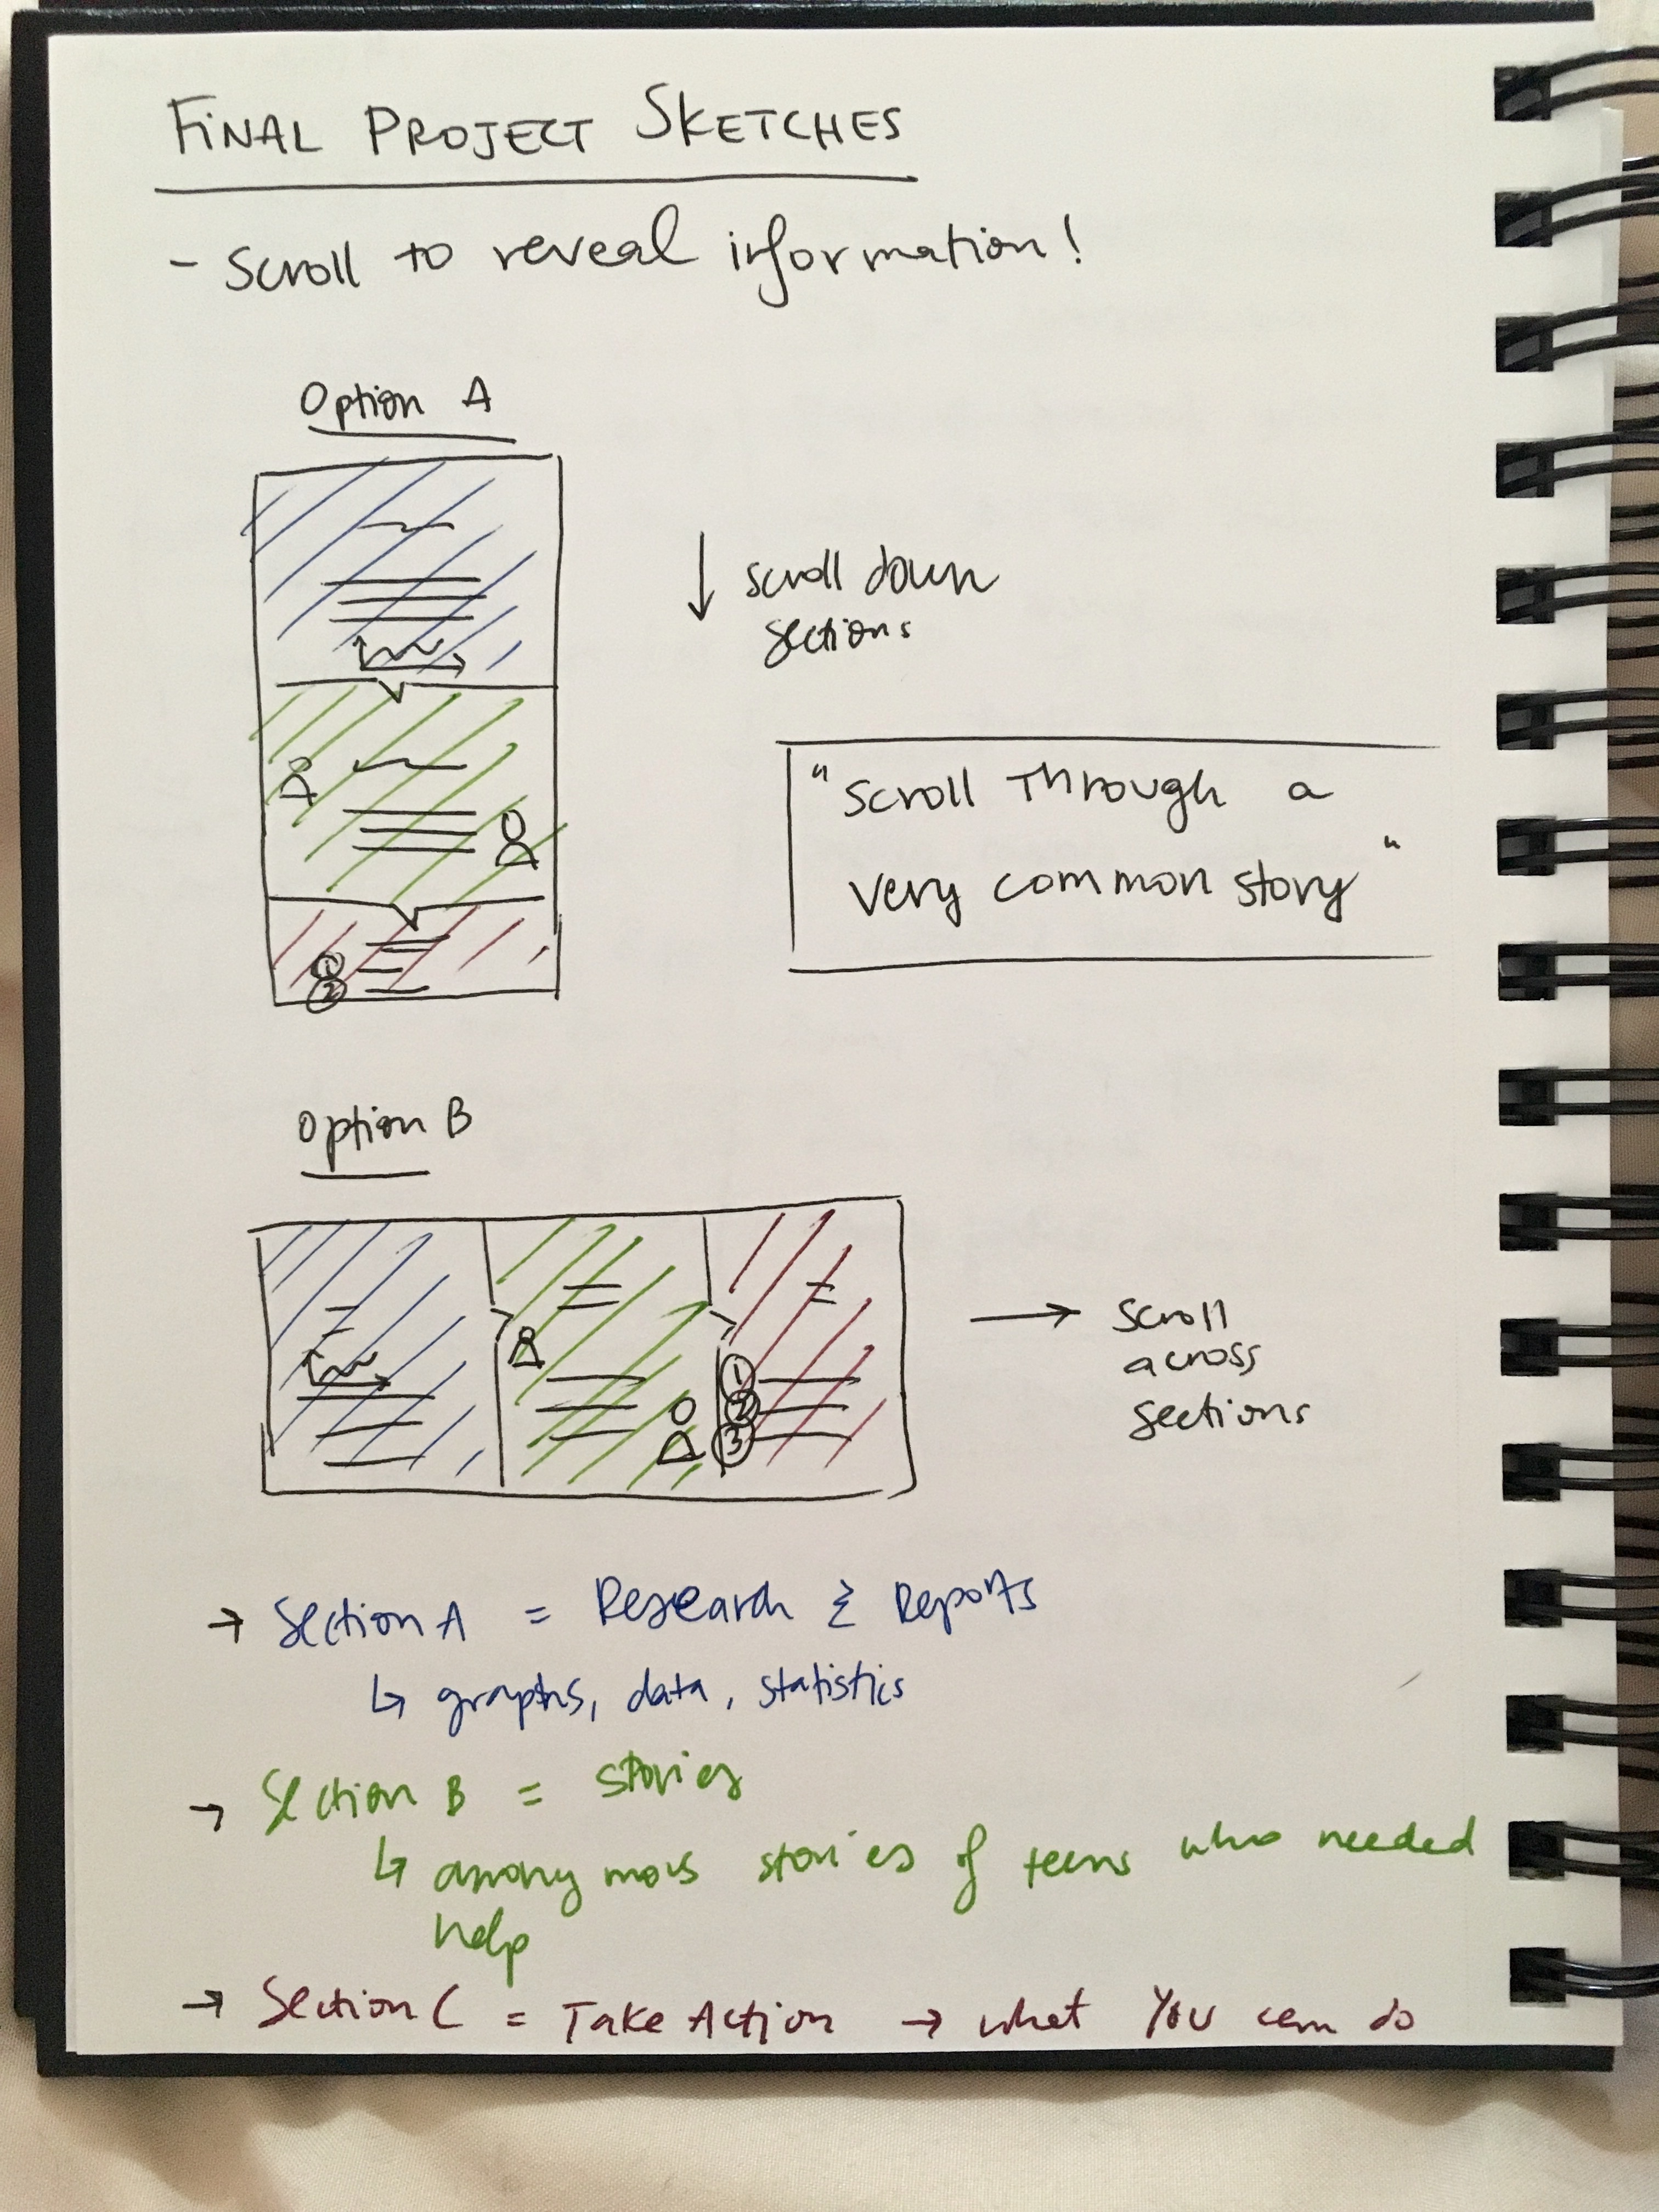 FINAL PROJECT SKETCHES
- Scroll to reveal information!
Option A
↓ scroll down
sections
"Scroll Through a
very common story"
①
②
Option B
①
②
③
→ scroll
across
sections
→ Section A = Research & Reports
↳ graphs, data, statistics
→ Section B = stories
↳ anonymous stories of teens who needed
help
→ Section C = Take Action → what you can do